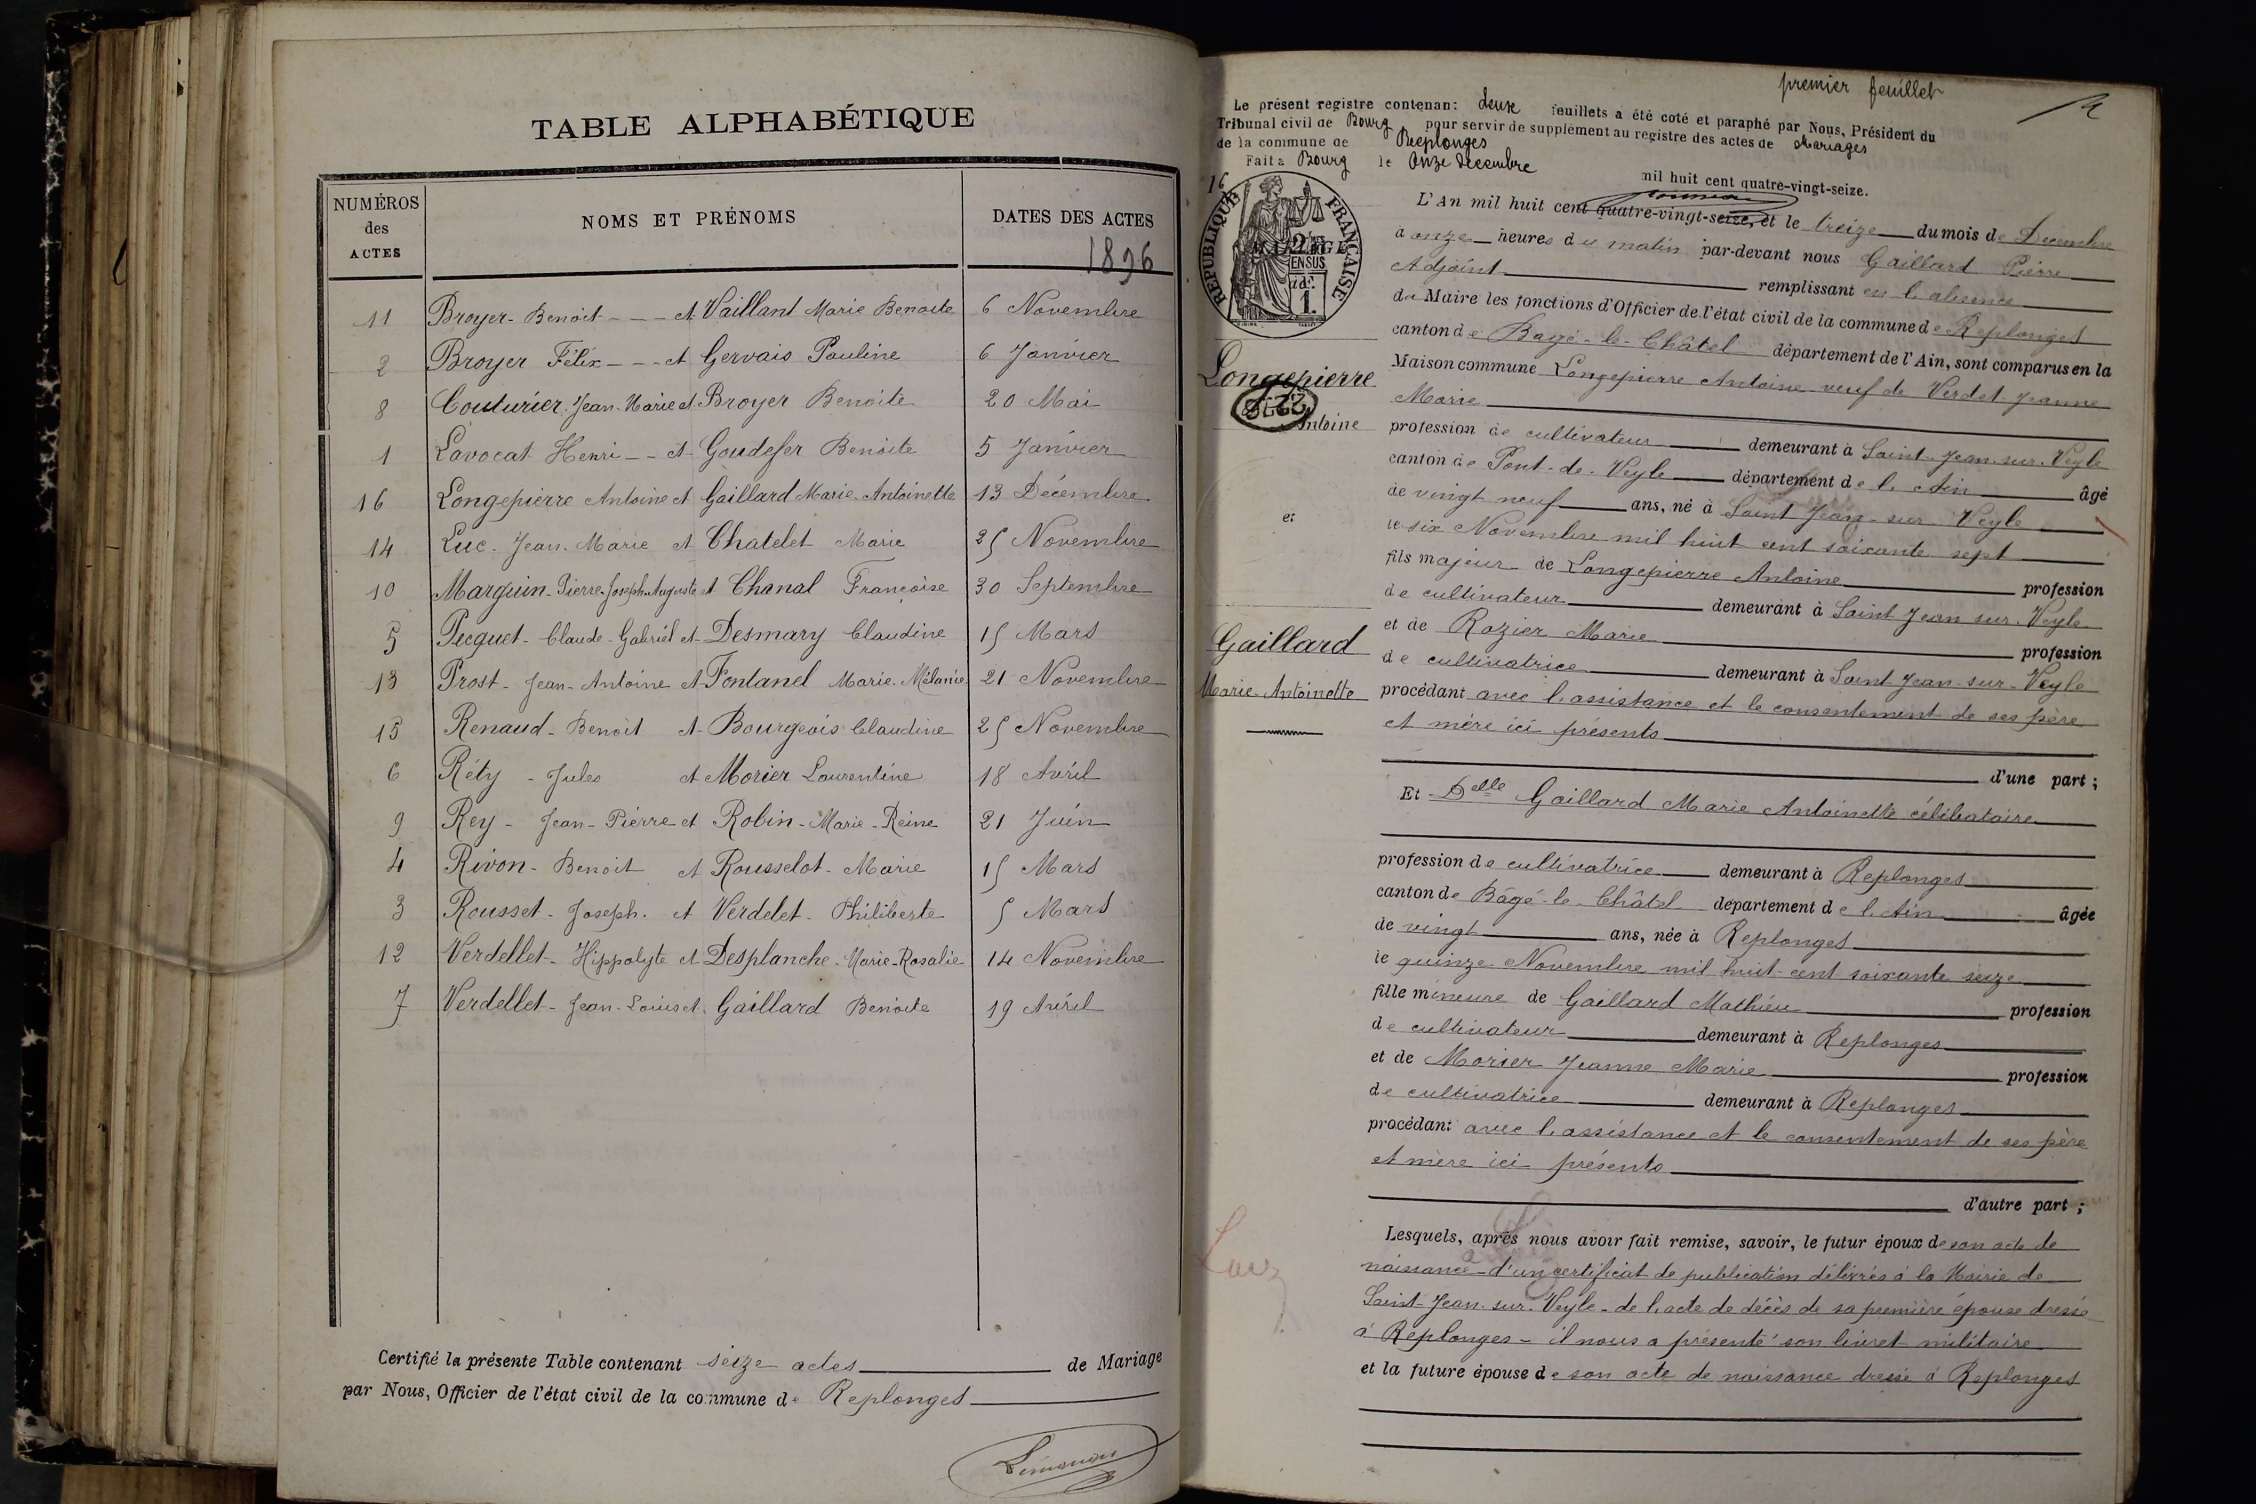 TABLE ALPHABÉTIQUE
NUMÉROS des ACTES
NOMS ET PRÉNOMS
DATES DES ACTES
1896
11 Broyer - Benoit - - - et Vaillant Marie Benoite 6 Novembre
2 Broyer Félix - - - et Gervais Pauline 6 Janvier
8 Couturier. Jean. Marie et Broyer Benoite 20 Mai
1 Lavocat Henri - - et Goudefer Benoite 5 Janvier
16 Longepierre Antoine et Gaillard Marie Antoinette 13 Décembre
14 Luc. Jean. Marie et Chatelet Marie 25 Novembre
10 Marguin - Pierre. Joseph. Auguste et Chanal Françoise 30 Septembre
5 Pecquet - Claude - Gabriel et Desmary Claudine 15 Mars
13 Prost - Jean - Antoine et Fontanel Marie. Mélanie 21 Novembre
15 Renaud - Benoit et Bourgeois Claudine 25 Novembre
6 Réty - Jules et Morier Laurentine 18 Avril
9 Rey - Jean - Pierre et Robin - Marie - Reine 21 Juin
4 Rivon - Benoit et Rousselot - Marie 15 Mars
3 Rousset - Joseph. et Verdelet - Philiberte 5 Mars
12 Verdellet - Hippolyte et Desplanche - Marie - Rosalie 14 Novembre
7 Verdellet - Jean - Louis et Gaillard Benoite 19 Avril
Certifié la présente Table contenant seize actes de Mariage
par Nous, Officier de l'état civil de la commune de Replonges
premier feuillet
Le présent registre contenant deux feuillets a été coté et paraphé par Nous, Président du
Tribunal civil de Bourg pour servir de supplément au registre des actes de Mariages
de la commune de Replonges
Fait à Bourg le onze décembre
mil huit cent quatre-vingt-seize.
16
RÉPUBLIQUE FRANÇAISE
MARIAGE
L'An mil huit cent quatre-vingt-seize, et le treize du mois de Décembre
à onze heures du matin par-devant nous Gaillard Pierre
Adjoint remplissant en l'absence
du Maire les fonctions d'Officier de l'état civil de la commune de Replonges
canton de Bagé-le-Châtel département de l'Ain, sont comparus en la
Longepierre
Antoine
Maison commune Longepierre Antoine veuf de Verdet Jeanne
Marie
profession de cultivateur demeurant à Saint-Jean-sur-Veyle
canton de Pont-de-Veyle département de l'Ain âgé
de vingt neuf ans, né à Saint Jean-sur-Veyle
et
le six Novembre mil huit cent soixante sept
fils majeur de Longepierre Antoine profession
de cultivateur demeurant à Saint Jean sur Veyle
Gaillard
Marie-Antoinette
et de Rozier Marie profession
de cultivatrice demeurant à Saint Jean-sur-Veyle
procédant avec l'assistance et le consentement de ses père
et mère ici présents
d'une part ;
Et Delle Gaillard Marie Antoinette célibataire
profession de cultivatrice demeurant à Replonges
canton de Bâgé-le-Châtel département de l'Ain âgée
de vingt ans, née à Replonges
le quinze Novembre mil huit cent soixante seize
fille mineure de Gaillard Mathieu profession
de cultivateur demeurant à Replonges
et de Morier Jeanne Marie profession
de cultivatrice demeurant à Replonges
procédant avec l'assistance et le consentement de ses père
et mère ici présents
d'autre part ;
Lesquels, après nous avoir fait remise, savoir, le futur époux de son acte de
naissance - d'un certificat de publication délivrés à la Mairie de
Saint-Jean-sur-Veyle - de l'acte de décès de sa première épouse dressé
à Replonges - il nous a présenté son livret militaire
et la future épouse de son acte de naissance dressé à Replonges